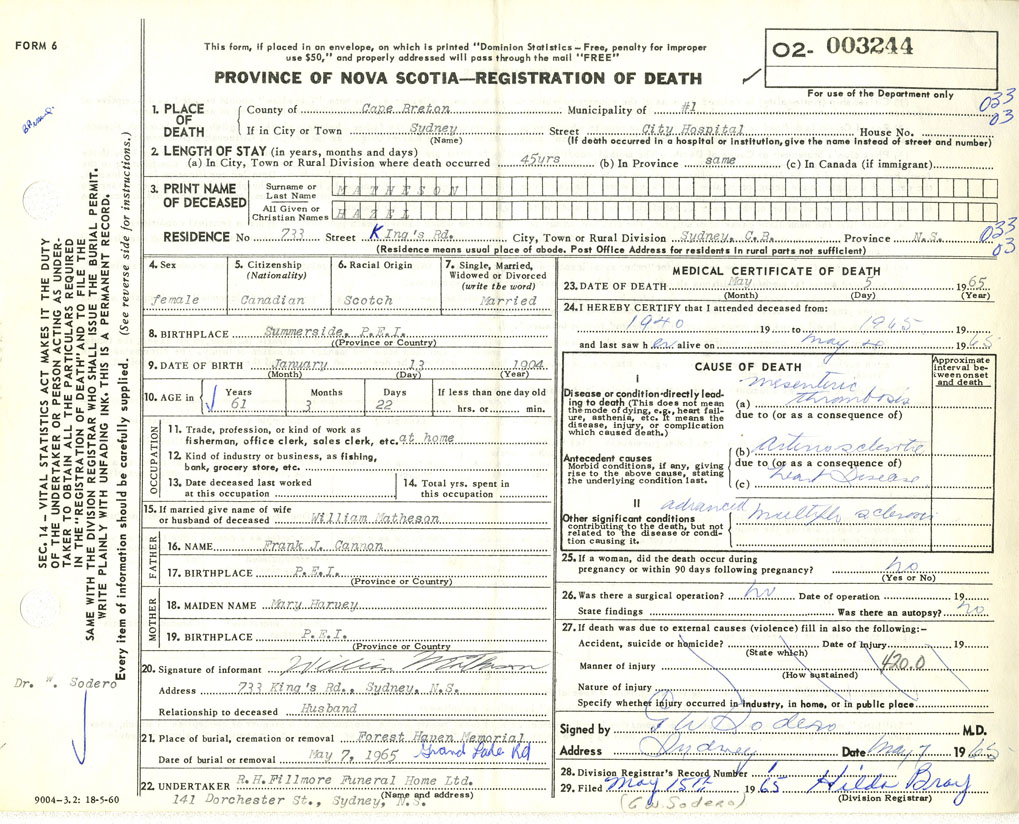 FORM 6
This form, if placed in an envelope, on which is printed "Dominion Statistics – Free, penalty for improper
use $50," and properly addressed will pass through the mail "FREE"
PROVINCE OF NOVA SCOTIA—REGISTRATION OF DEATH
02- 003244
For use of the Department only
033
03
1. PLACE OF DEATH
County of Cape Breton Municipality of #1
If in City or Town Sydney Street City Hospital House No.
(Name) (If death occurred in a hospital or institution, give the name instead of street and number)
2. LENGTH OF STAY (in years, months and days)
(a) In City, Town or Rural Division where death occurred 45yrs (b) In Province same (c) In Canada (if immigrant)
3. PRINT NAME OF DECEASED
Surname or Last Name MATHESON
All Given or Christian Names HAZEL
RESIDENCE No 733 Street King's Rd. City, Town or Rural Division Sydney, C.B. Province N.S.
033
03
(Residence means usual place of abode. Post Office Address for residents in rural parts not sufficient)
4. Sex
female
5. Citizenship (Nationality)
Canadian
6. Racial Origin
Scotch
7. Single, Married, Widowed or Divorced (write the word)
Married
8. BIRTHPLACE Summerside, P.E.I.
((Province or Country)
9. DATE OF BIRTH January 13 1904
(Month) (Day) (Year)
10. AGE in
Years Months Days If less than one day old
61 3 22 hrs. or min.
OCCUPATION
11. Trade, profession, or kind of work as
fisherman, office clerk, sales clerk, etc. at home
12. Kind of industry or business, as fishing,
bank, grocery store, etc.
13. Date deceased last worked
at this occupation
14. Total yrs. spent in
this occupation
15. If married give name of wife
or husband of deceased William Matheson
FATHER
16. NAME Frank J. Cannon
17. BIRTHPLACE P.E.I.
(Province or Country)
MOTHER
18. MAIDEN NAME Mary Harvey
19. BIRTHPLACE P.E.I.
(Province or Country)
20. Signature of informant William Matheson
Address 733 King's Rd., Sydney, N.S.
Relationship to deceased Husband
21. Place of burial, cremation or removal Forest Haven Memorial
Date of burial or removal May 7, 1965 Grand Lake Rd
22. UNDERTAKER R.H. Fillmore Funeral Home Ltd.
(Name and address)
141 Dorchester St., Sydney, N.S.
MEDICAL CERTIFICATE OF DEATH
23. DATE OF DEATH May 5 1965
(Month) (Day) (Year)
24. I HEREBY CERTIFY that I attended deceased from:
1940 19 to 1965 19
and last saw her alive on May 1965
CAUSE OF DEATH
Approximate interval between onset and death
I
Disease or condition directly leading to death (This does not mean
the mode of dying, e.g., heart failure, asthenia, etc. It means the
disease, injury, or complication
which caused death.)
(a) mesenteric thrombosis
due to (or as a consequence of)
Antecedent causes
Morbid conditions, if any, giving
rise to the above cause, stating
the underlying condition last.
(b) Arteriosclerotic
due to (or as a consequence of)
(c) heart Disease
II
Other significant conditions
contributing to the death, but not
related to the disease or condition causing it.
advanced multiple sclerosis
25. If a woman, did the death occur during
pregnancy or within 90 days following pregnancy? no
(Yes or No)
26. Was there a surgical operation? no Date of operation 19
State findings Was there an autopsy? no
27. If death was due to external causes (violence) fill in also the following:–
Accident, suicide or homicide? Date of Injury 19
(State which)
Manner of injury 420.0
(How sustained)
Nature of injury
Specify whether injury occurred in industry, in home, or in public place
Signed by G W Sodero M.D.
Address Sydney Date May 7 1965
28. Division Registrar's Record Number
29. Filed May 15th 1965 Hilda Bray
(Division Registrar)
(G W. Sodero)
SEC. 14 – VITAL STATISTICS ACT MAKES IT THE DUTY
OF THE UNDERTAKER OR PERSON ACTING AS UNDER-
TAKER TO OBTAIN ALL THE PARTICULARS REQUIRED
IN THE "REGISTRATION OF DEATH" AND TO FILE THE
SAME WITH THE DIVISION REGISTRAR WHO SHALL ISSUE THE BURIAL PERMIT.
WRITE PLAINLY WITH UNFADING INK. THIS IS A PERMANENT RECORD.
Every item of information should be carefully supplied. (See reverse side for instructions.)
Dr. W. Sodero
9004-3.2: 18-5-60